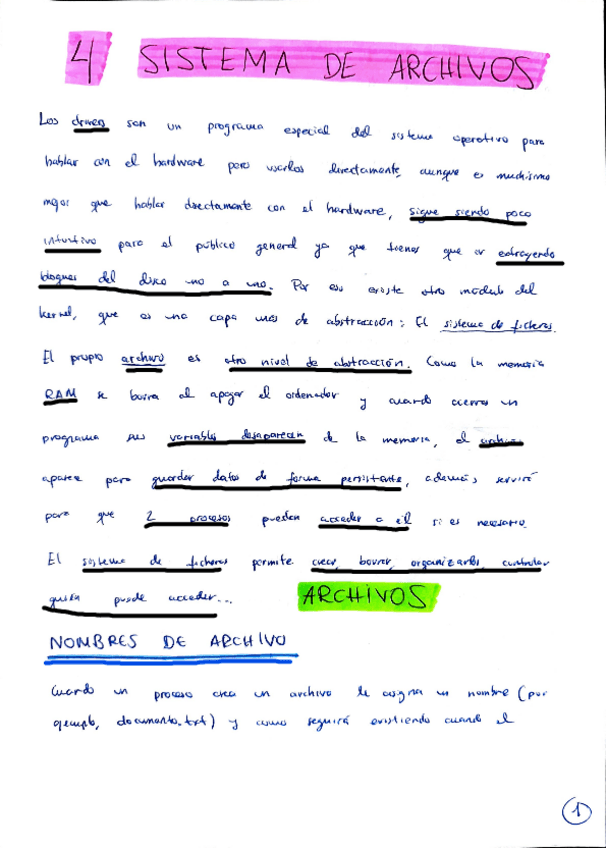 4 SISTEMA DE ARCHIVOS
Los drivers son un programa especial del sistema operativo para
hablar con el hardware pero usarlos directamente, aunque es muchísimo
mejor que hablar directamente con el hardware, sigue siendo poco
intuitivo para el público general ya que tienes que ir extrayendo
bloques del disco uno a uno. Por eso existe otro módulo del
kernel, que es una capa más de abstracción: El sistema de ficheros.
El propio archivo es otro nivel de abstracción. Como la memoria
RAM se borra al apagar el ordenador y cuando cierras un
programa sus variables desaparecen de la memoria, el archivo
aparece para guardar datos de forma persistente, además servirá
para que 2 procesos puedan acceder a él si es necesario.
El sistema de ficheros permite crear, borrar, organizarlos, controlar
quién puede acceder...
ARCHIVOS
NOMBRES DE ARCHIVO
Cuando un proceso crea un archivo le asigna un nombre (por
ejemplo, documento.txt) y como seguirá existiendo cuando el
1